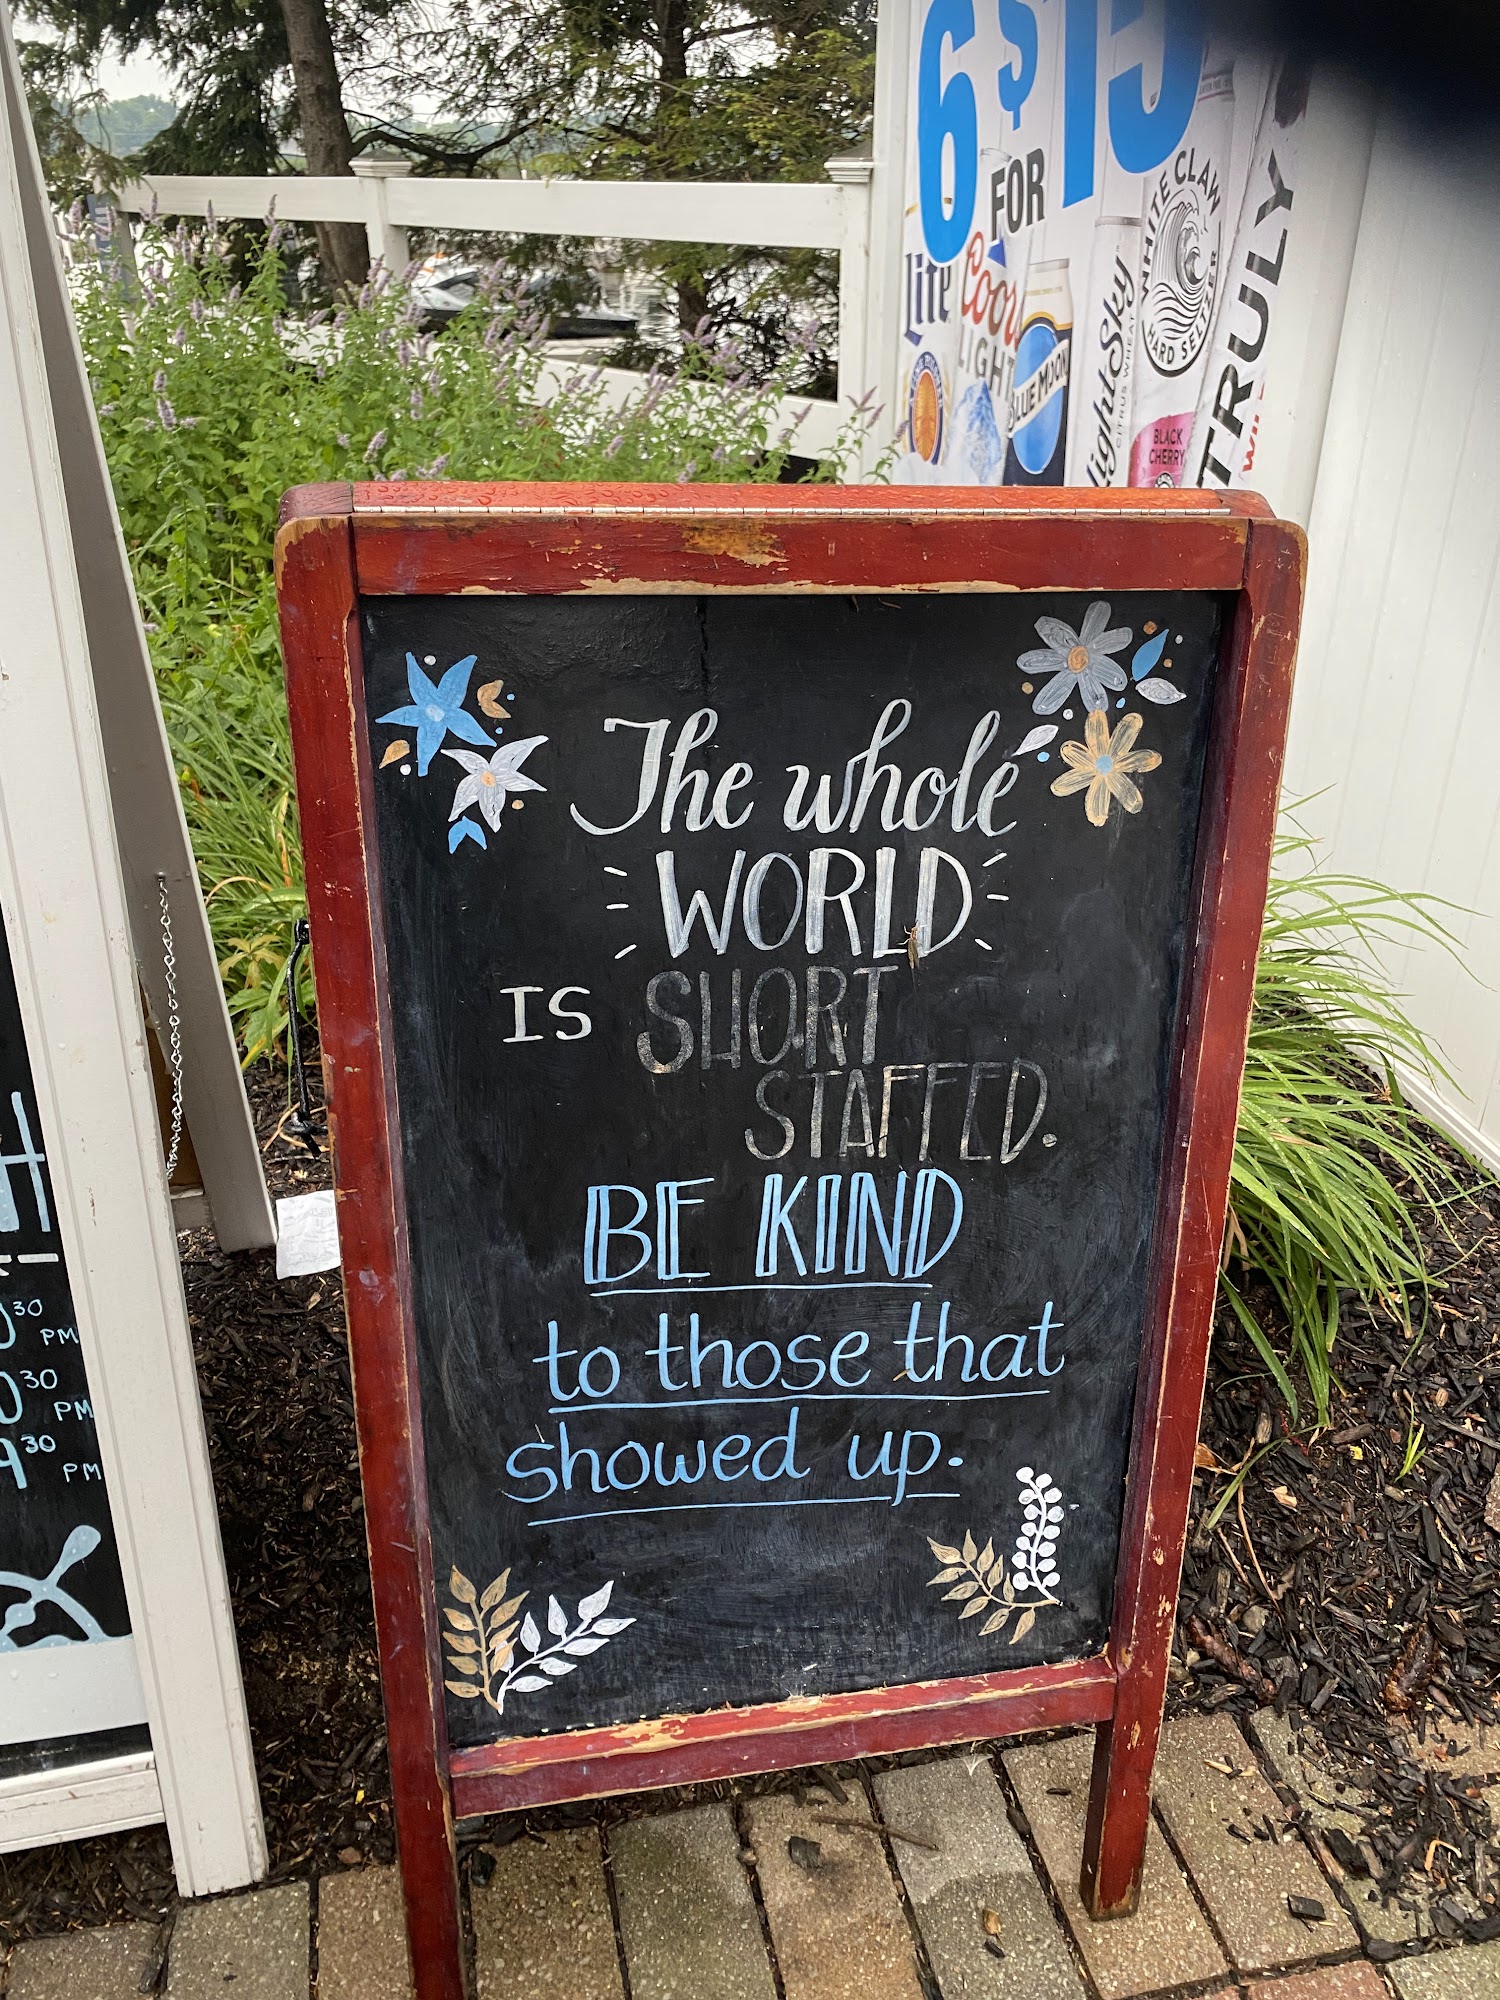 6 $15
FOR
Lite
Coors
LIGHT
BLUE MOON
LightSky
CITRUS WHEAT
WHITE CLAW
HARD SELTZER
BLACK
CHERRY
TRULY
The whole
WORLD
IS SHORT
STAFFED.
BE KIND
to those that
showed up.
30 PM
30 PM
9 30 PM